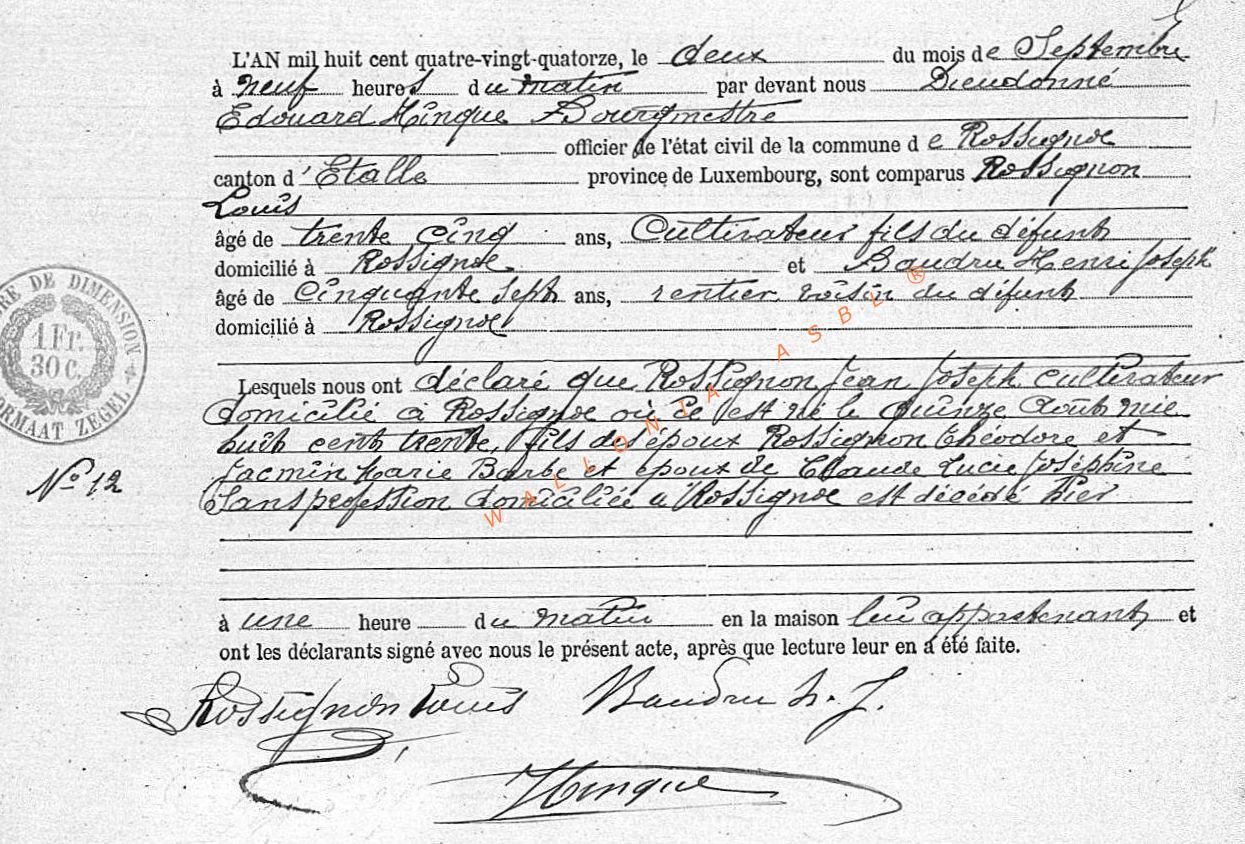 L'AN mil huit cent quatre-vingt-quatorze, le deux du mois de Septembre
à neuf heures du matin par devant nous Dieudonné
Edouard Hinque Bourgmestre
officier de l'état civil de la commune de Rossignol
canton d'Etalle province de Luxembourg, sont comparus Rossignon
Louis
âgé de trente cinq ans, Cultivateur fils du défunt
domicilié à Rossignol et Baudru Henri Joseph
âgé de Cinquante sept ans, rentier voisin du défunt
domicilié à Rossignol
Lesquels nous ont déclaré que Rossignon Jean Joseph cultivateur
domicilié à Rossignol où il est né le quinze août mil
huit cent trente, fils des époux Rossignon Théodore et
Jacmin Marie Barbe et époux de Claude Lucie Joséphine
Sans profession domiciliée à Rossignol est décédé hier
à une heure du matin en la maison lui appartenant et
ont les déclarants signé avec nous le présent acte, après que lecture leur en a été faite.
Rossignon Louis Baudru h. J.
Hinque
No 12
RE DE DIMENSION
1 Fr.
30 C.
ORMAAT ZEGEL
WALLONIA ASBL ®